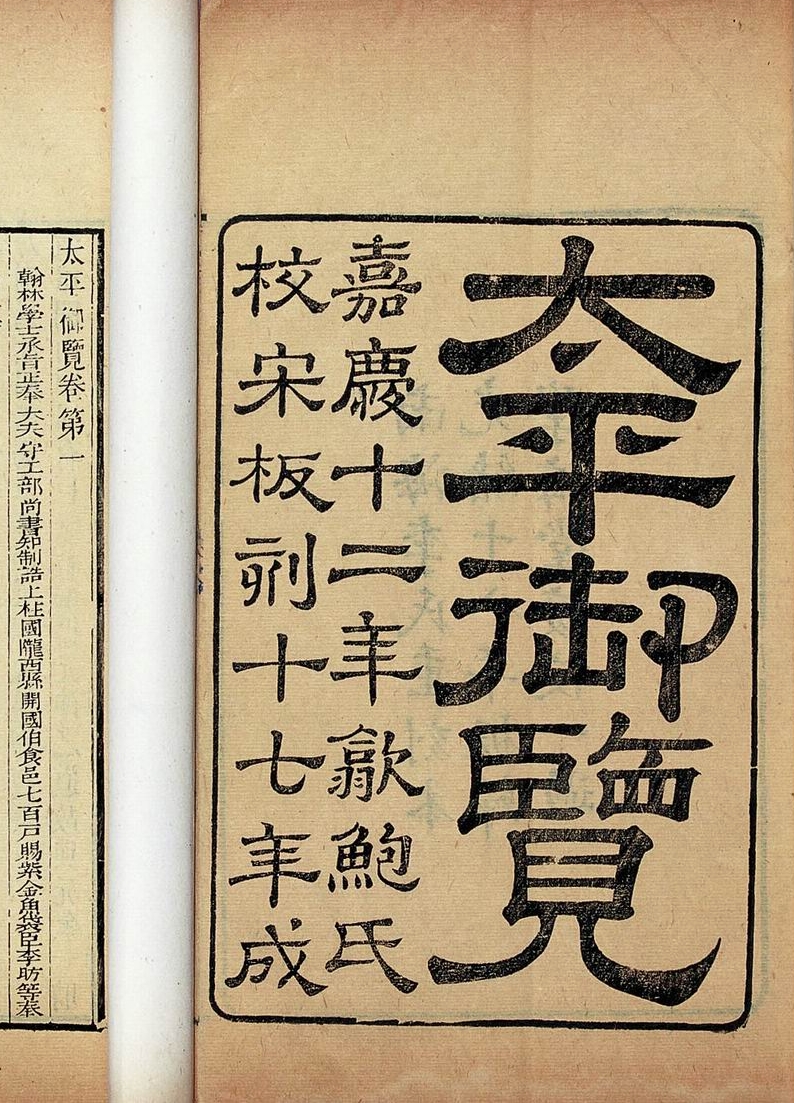 太平御覽
嘉慶十二年歙鮑氏
校宋板刻十七年成
太平御覽卷第一
翰林學士承旨正奉大夫守工部尚書知制誥上柱國隴西縣開國伯食邑七百戸賜紫金魚袋臣李昉等奉